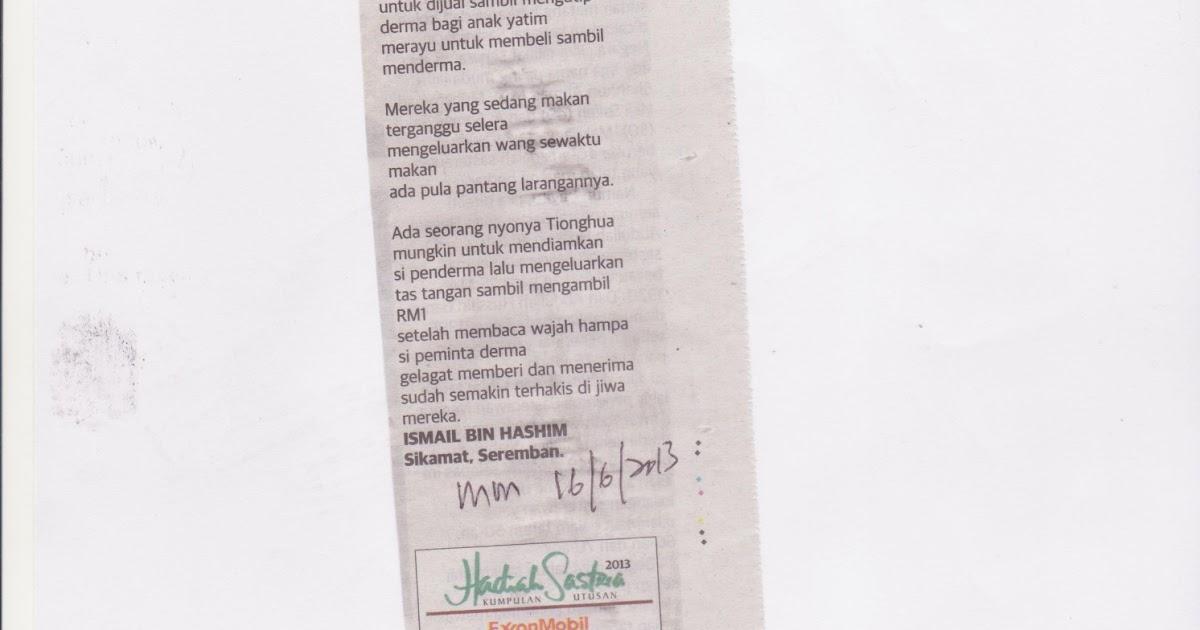 untuk dijual sambil mengutip
derma bagi anak yatim
merayu untuk membeli sambil
menderma.
Mereka yang sedang makan
terganggu selera
mengeluarkan wang sewaktu
makan
ada pula pantang larangannya.
Ada seorang nyonya Tionghua
mungkin untuk mendiamkan
si penderma lalu mengeluarkan
tas tangan sambil mengambil
RM1
setelah membaca wajah hampa
si peminta derma
gelagat memberi dan menerima
sudah semakin terhakis di jiwa
mereka.
ISMAIL BIN HASHIM
Sikamat, Seremban.
mm 16/6/2013
Hadiah Sastera 2013
KUMPULAN UTUSAN
ExxonMobil